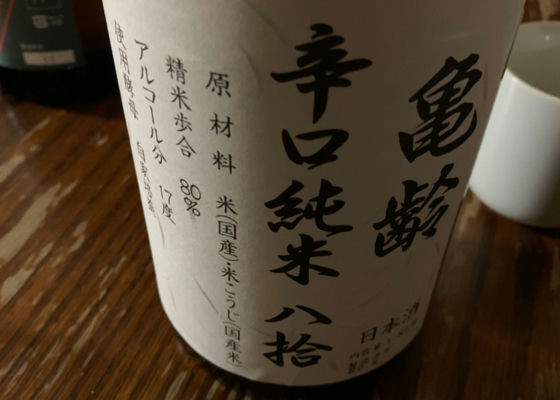 亀齢
辛口純米 八拾
日本酒
原材料 米(国産)・米こうじ(国産米)
精米歩合 80%
アルコール分 17度
使用酵母